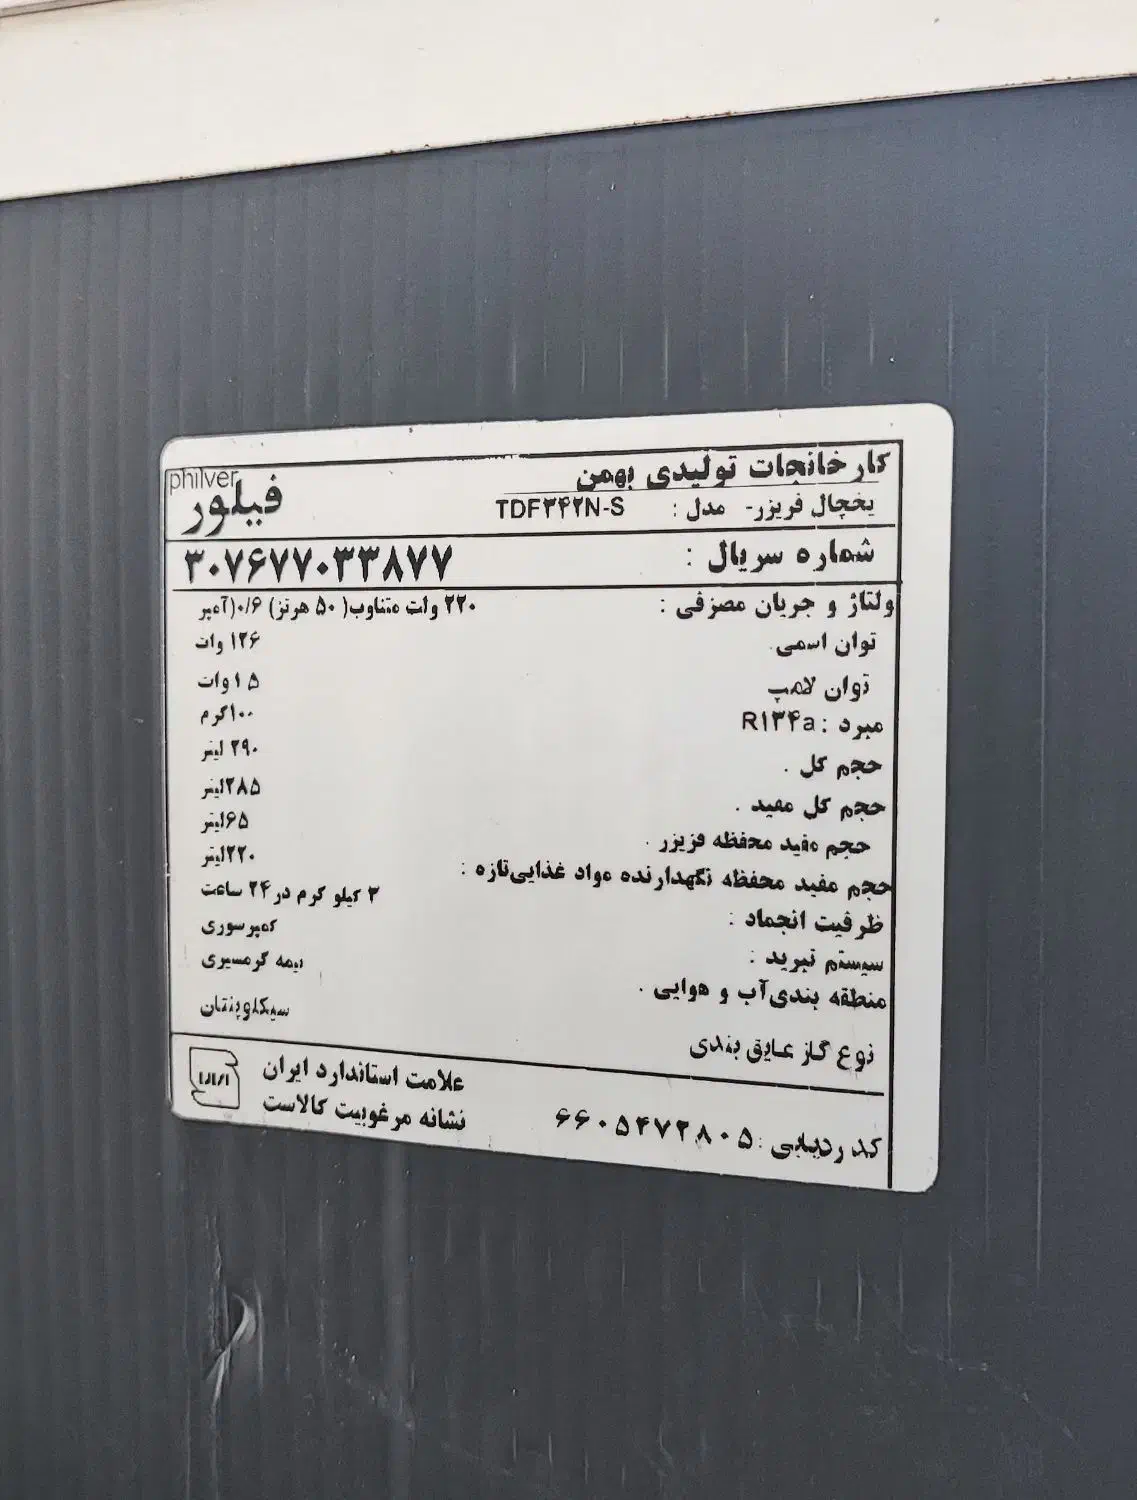 کارخانجات تولیدی بهمن
philver
فیلور
یخچال فریزر- مدل : TDF۳۴۲N-S
شماره سریال : ۳۰۷۶۷۷۰۳۳۸۷۷
ولتاژ و جریان مصرفی : ۲۲۰ وات متناوب( ۵۰ هرتز) ۰/۶(آمپر
توان اسمی. ۱۲۶ وات
توان لامپ ۱۵ وات
مبرد : R۱۳۴a ۱۰۰گرم
حجم کل . ۲۹۰ لیتر
حجم کل مفید . ۲۸۵لیتر
حجم مفید محفظه فریزر . ۶۵لیتر
حجم مفید محفظه نگهدارنده مواد غذایی‌تازه : ۲۲۰لیتر
ظرفیت انجماد : ۳ کیلو گرم در ۲۴ ساعت
سیستم تبرید : کمپرسوری
منطقه بندی‌آب و هوایی . نیمه گرمسیری
نوع گاز عایق بندی سیکلوپنتان
علامت استاندارد ایران
نشانه مرغوبیت کالاست
کد ردیابی : ۶۶۰۵۴۷۲۸۰۵